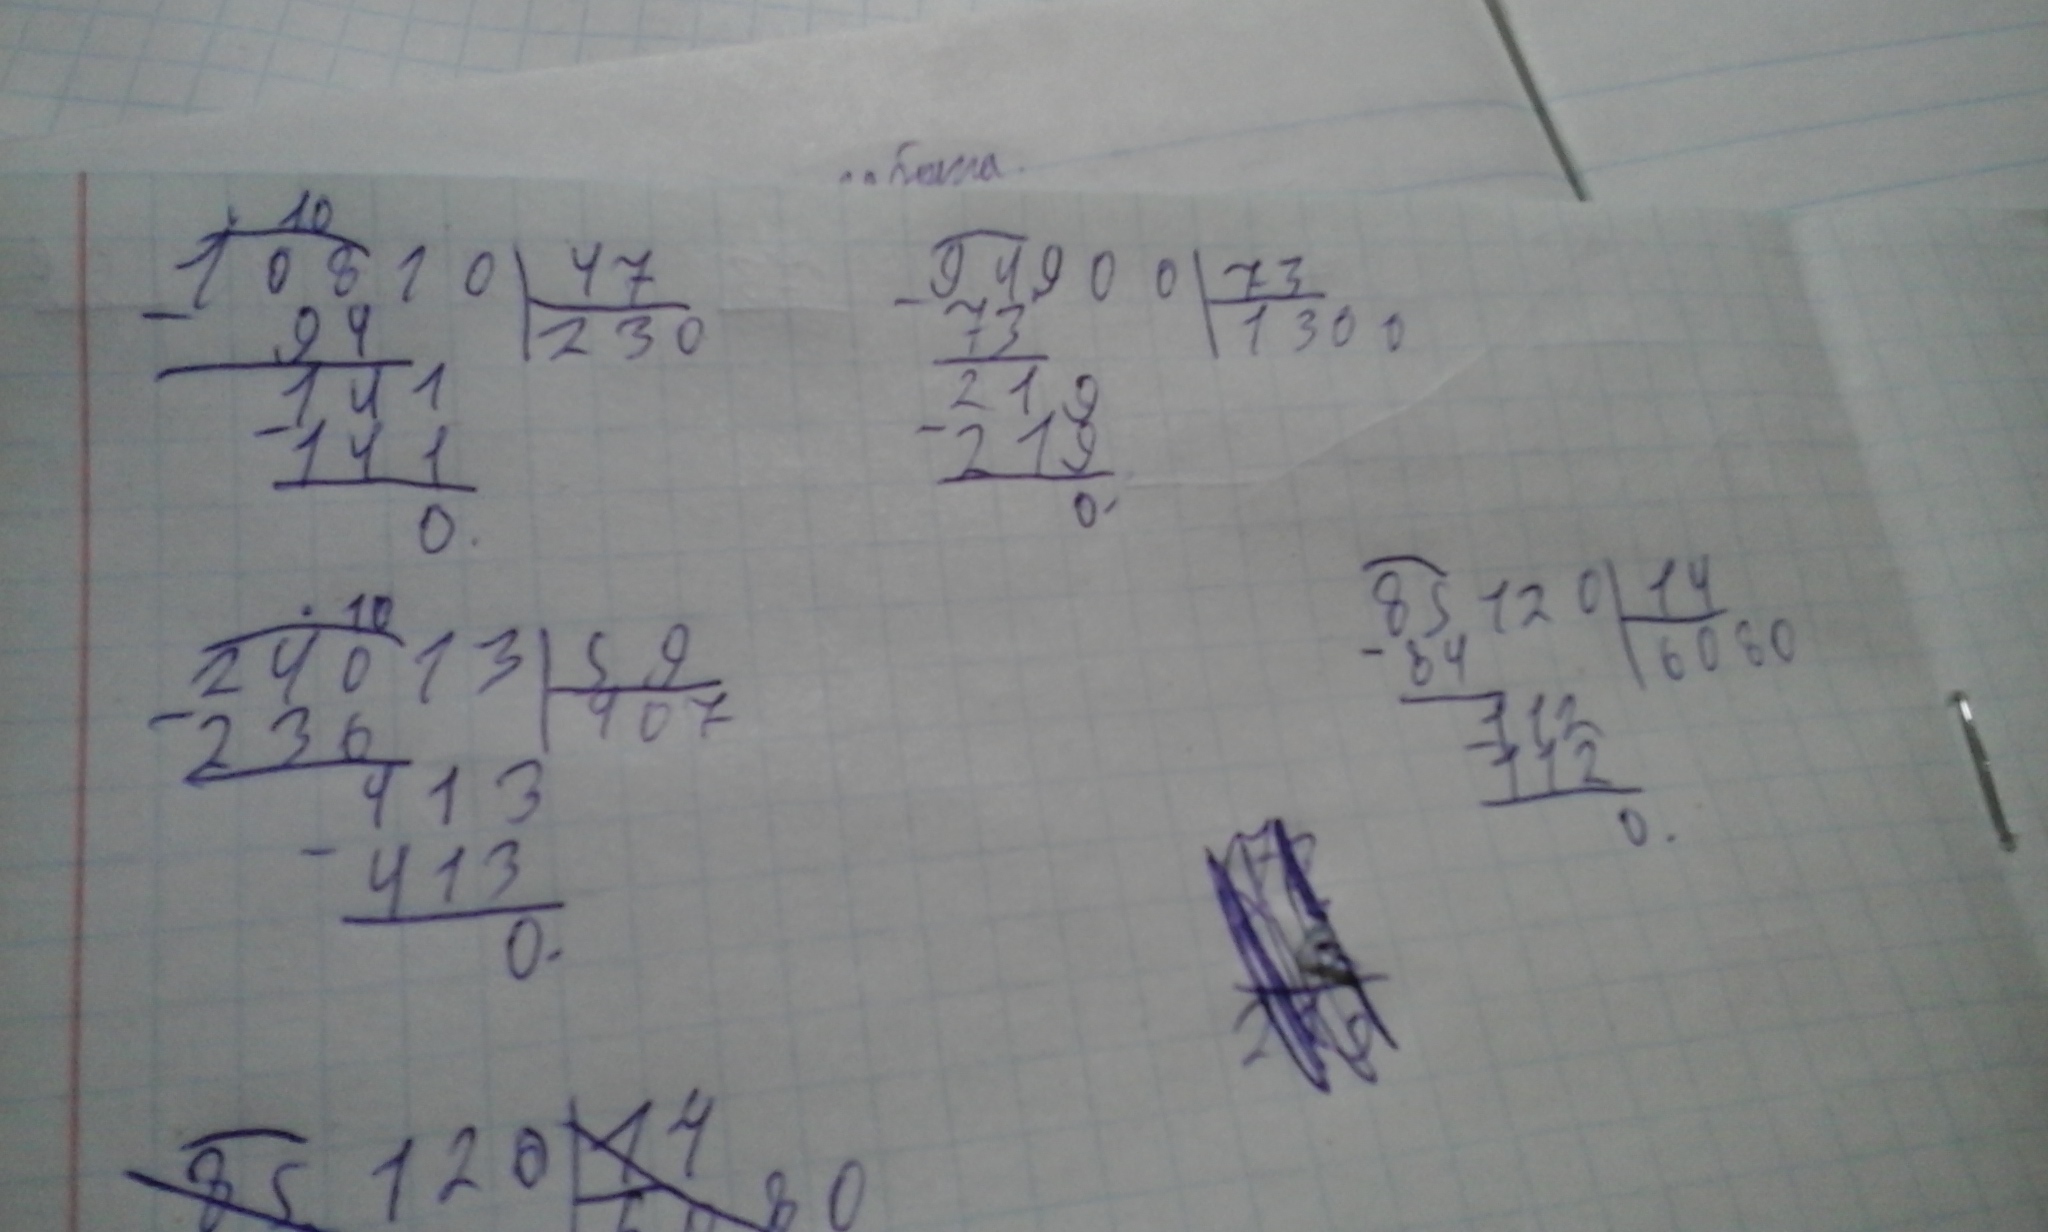 10
10810 47
- 94 230
141
- 141
0.
94900 73
- 73 1300
219
- 219
0.
10
24013 59
- 236 407
413
- 413
0.
85120 14
- 84 6080
112
- 112
0.
85120 14
6080